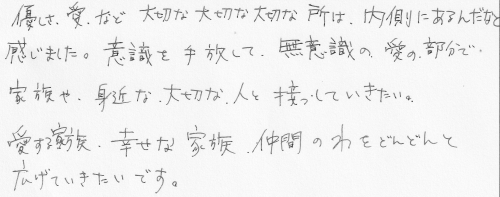 優しさ、愛、など 大切な大切な大切な 所は、内側にあるんだなと
感じました。意識を手放して、無意識の、愛の、部分で、
家族や、身近な、大切な、人と 接っしていきたい。
愛する家族、幸せな 家族、仲間のわをどんどんと
広げていきたいです。